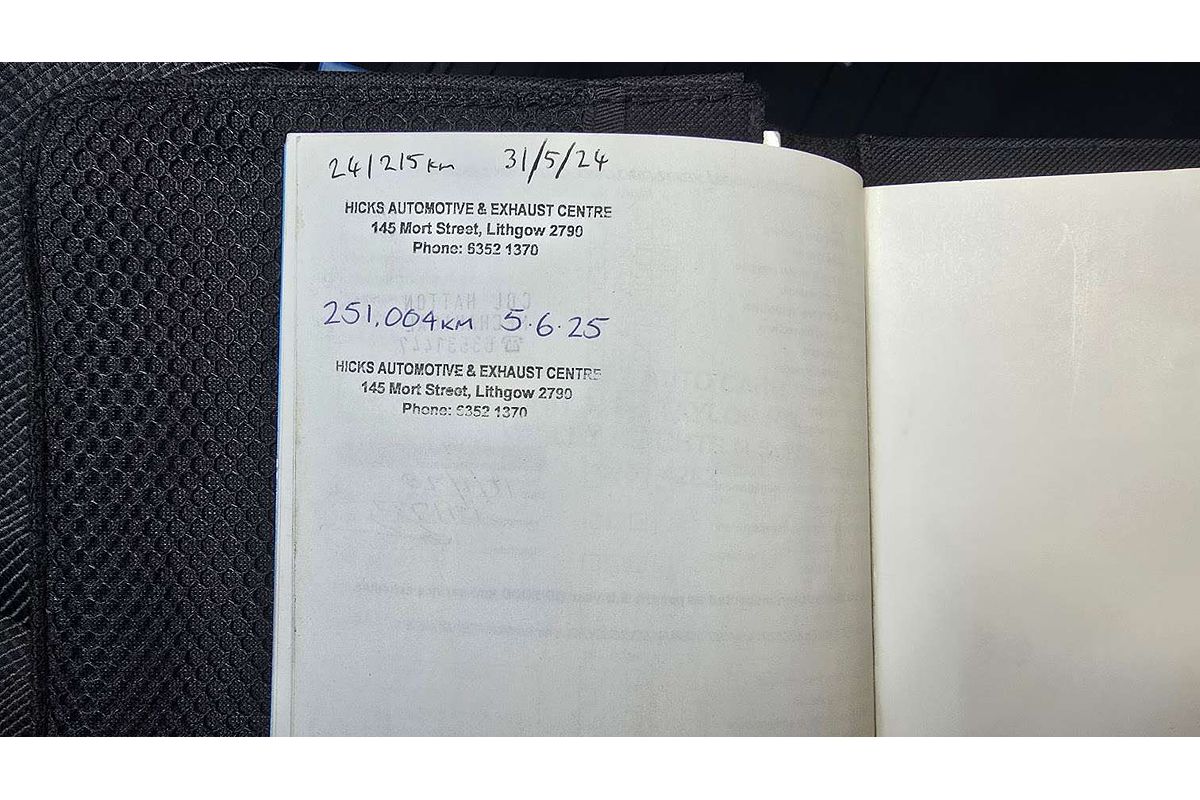 241215km 31/5/24
HICKS AUTOMOTIVE & EXHAUST CENTRE
145 Mort Street, Lithgow 2790
Phone: 6352 1370
251,004KM 5.6.25
HICKS AUTOMOTIVE & EXHAUST CENTRE
145 Mort Street, Lithgow 2790
Phone: 6352 1370